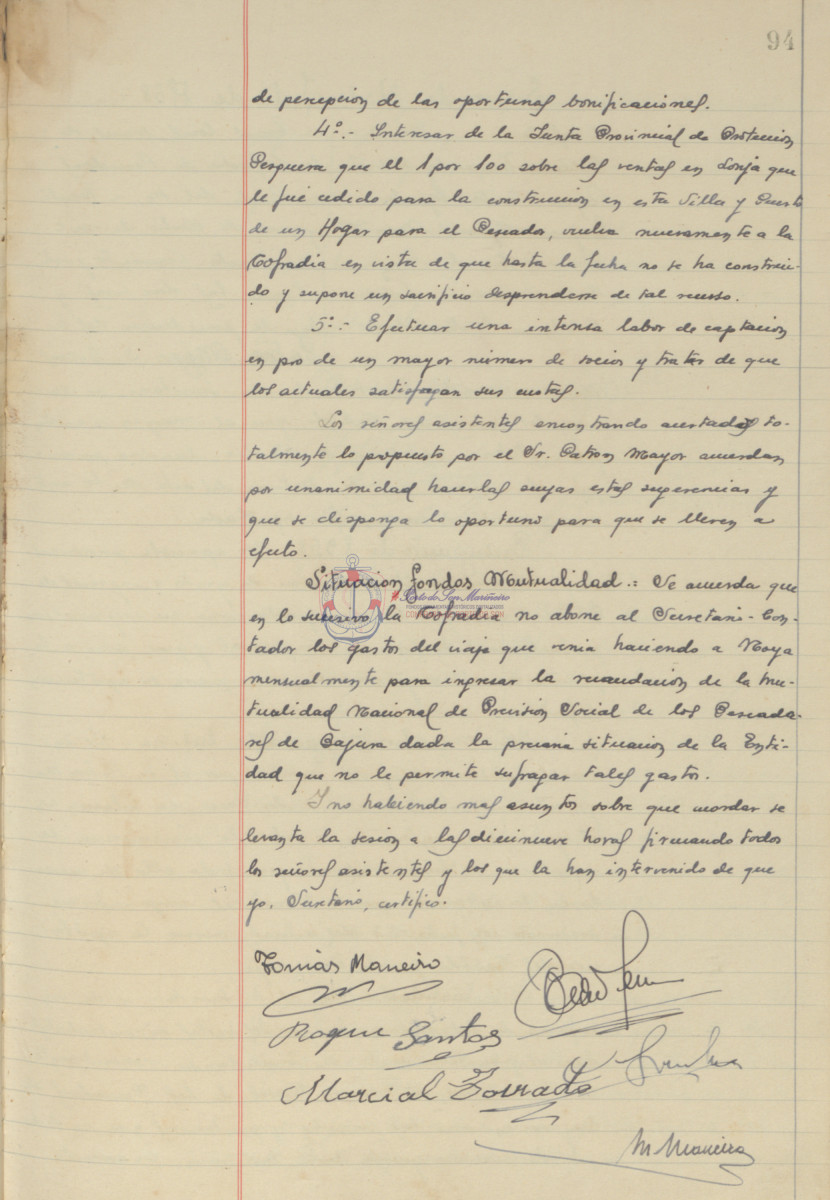 94
de percepcion de las oportunas bonificaciones.
4º.- Interesar de la Junta Provincial de Proteccion
Pesquera que el 1 por 100 sobre las ventas en Lonja que
le fué cedido para la construccion en esta Villa y Puerto
de un Hogar para el Pescador, vuelva nuevamente a la
Cofradia en vista de que hasta la fecha no se ha construi-
do y supone un sacrificio desprenderse de tal recurso.
5º.- Efectuar una intensa labor de captacion
en pro de un mayor número de socios y tratar de que
los actuales satisfagan sus cuotas.
Los señores asistentes encontrando acertadas to-
talmente lo propuesto por el Sr. Patron Mayor acuerdan
por unanimidad hacerlas suyas estas sugerencias y
que se disponga lo oportuno para que se lleven a
efecto.
Situacion fondos Mutualidad.= Se acuerda que
en lo sucesivo la Cofradia no abone al Secretario-Con-
tador los gastos del viaje que venia haciendo a Noya
mensualmente para ingresar la recaudación de la Mu-
tualidad Nacional de Prevision Social de los Pescado-
res de Bajura dada la precaria situacion de la Enti-
dad que no le permite sufragar tales gastos.
Y no habiendo mas asuntos sobre que acordar se
levanta la sesión a las diecinueve horas firmando todos
los señores asistentes y los que la han intervenido de que
yo, Secretario, certifico.
Tomás Maneiro
Roque Santos
Marcial Torrado
M Maneiro